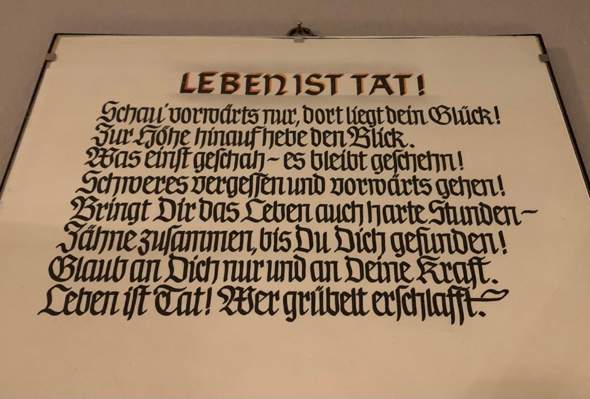 LEBEN IST TAT!
Schau' vorwärts nur, dort liegt dein Glück!
Zur Höhe hinauf hebe den Blick.
Was einst geschah - es bleibt geschehn!
Schweres vergessen und vorwärts gehen!
Bringt Dir das Leben auch harte Stunden-
Zähne zusammen, bis Du Dich gefunden!
Glaub an Dich nur und an Deine Kraft.
Leben ist Tat! Wer grübelt erschlafft.